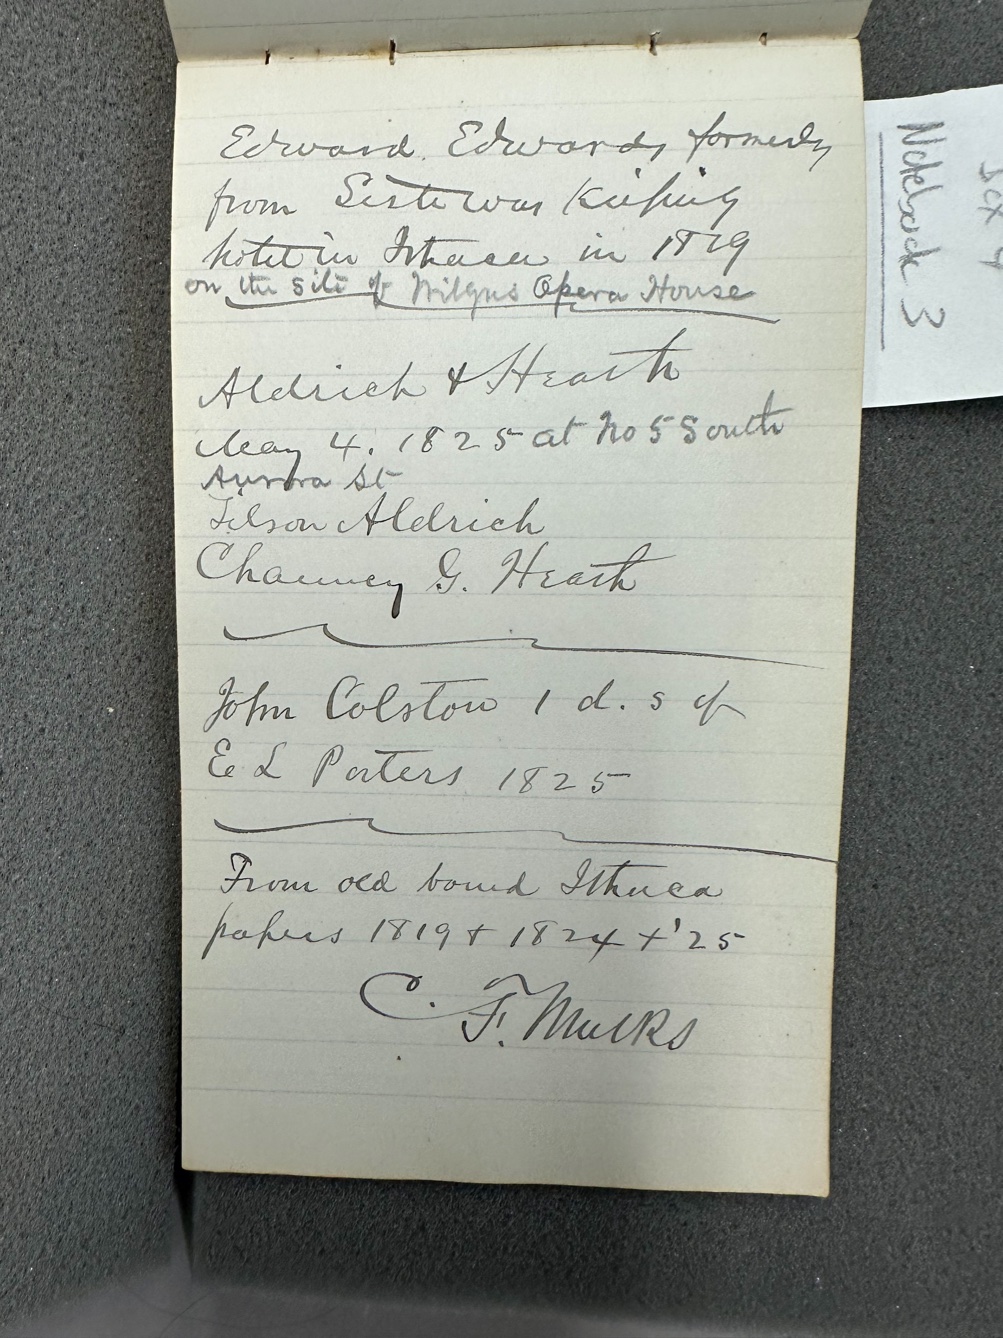 Edward Edwards formerly
from Sisteterville was keeping
hotel in Ithaca in 1819
on the site of Wilgus Opera House
Aldrich & Heath
May 4, 1825 at No 5 South
Aurora St
Tilson Aldrich
Chauncey G. Heath
John Colston 1 d. s of
E L Porters 1825
From old bound Ithaca
papers 1819 + 1824 + '25
C. F. Mulks
Notebook 3